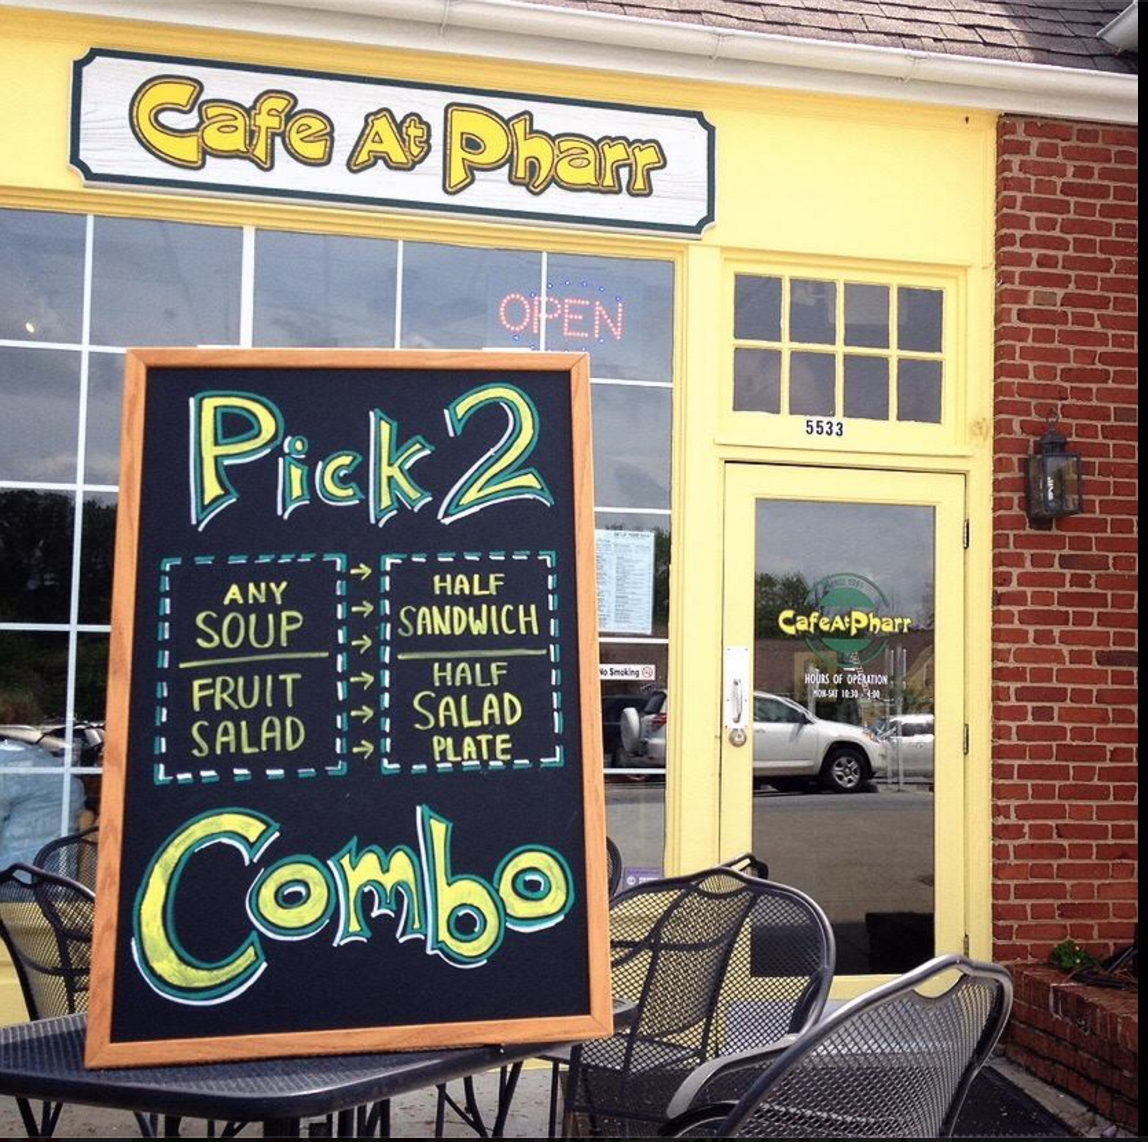 Cafe At Pharr
OPEN
5533
Pick 2
ANY
SOUP
FRUIT
SALAD
HALF
SANDWICH
HALF
SALAD
PLATE
Combo
No Smoking
CafeAtPharr
HOURS OF OPERATION
MON-SAT 10:30 - 4:00